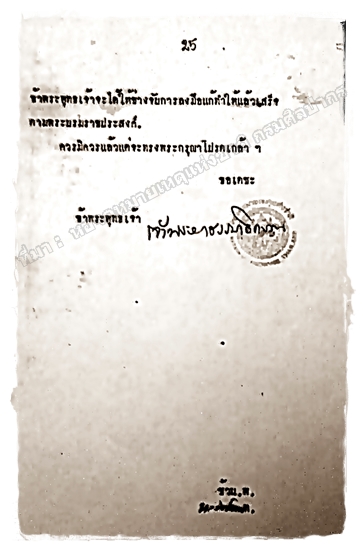 25
ข้าพระพุทธเจ้าจะได้ให้ช่างจับการลงมือแก้ทำให้แล้วเสร็จ
ตามพระบรมราชประสงค์.
ควรมิควรแล้วแต่จะทรงพระกรุณาโปรดเกล้า ฯ
ขอเดชะ
ข้าพระพุทธเจ้า
ที่มา : หอจดหมายเหตุแห่งชาติ กรมศิลปากร